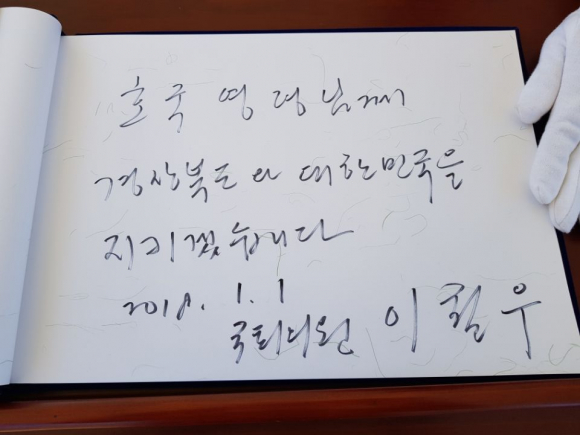 호국영령님께
경상북도와 대한민국을
지키겠습니다
2018. 1. 1
국회의원 이철우